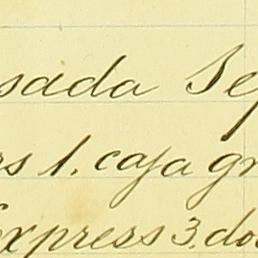 sada Sep
rs 1. caja gr
Express 3. dos